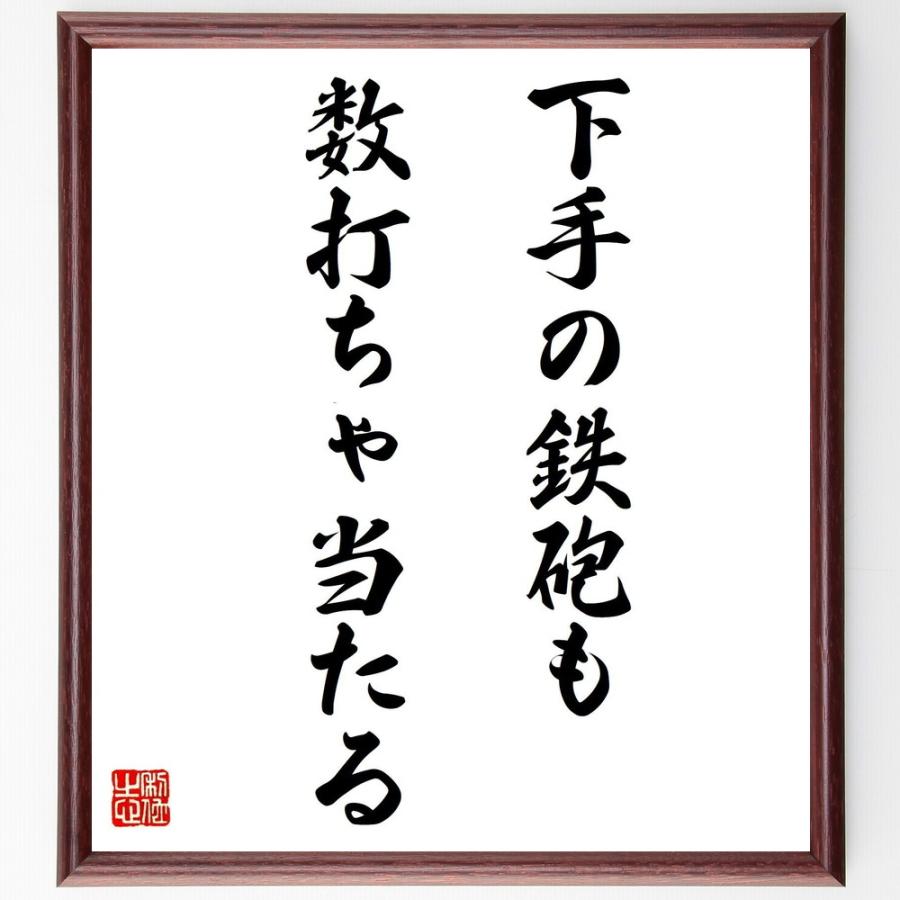 下手の鉄砲も
数打ちゃ当たる